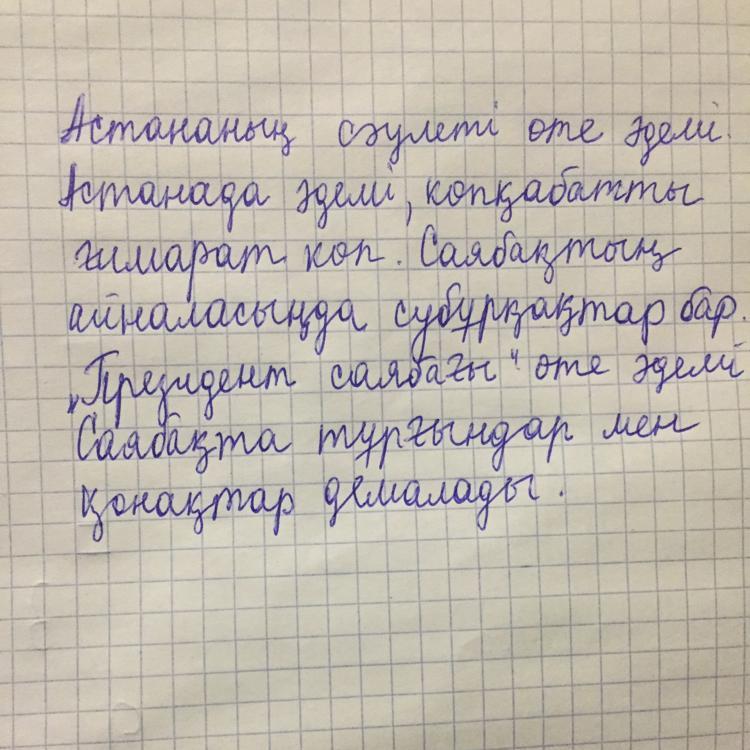 Астананың сәулеті өте әдемі.
Астанада әдемі, көпқабатты
ғимарат көп. Саябақтың
айналасыңда субұрқақтар бар.
„Президент саябағы" өте әдемі
Саябақта тұрғындар мен
қонақтар демалады.